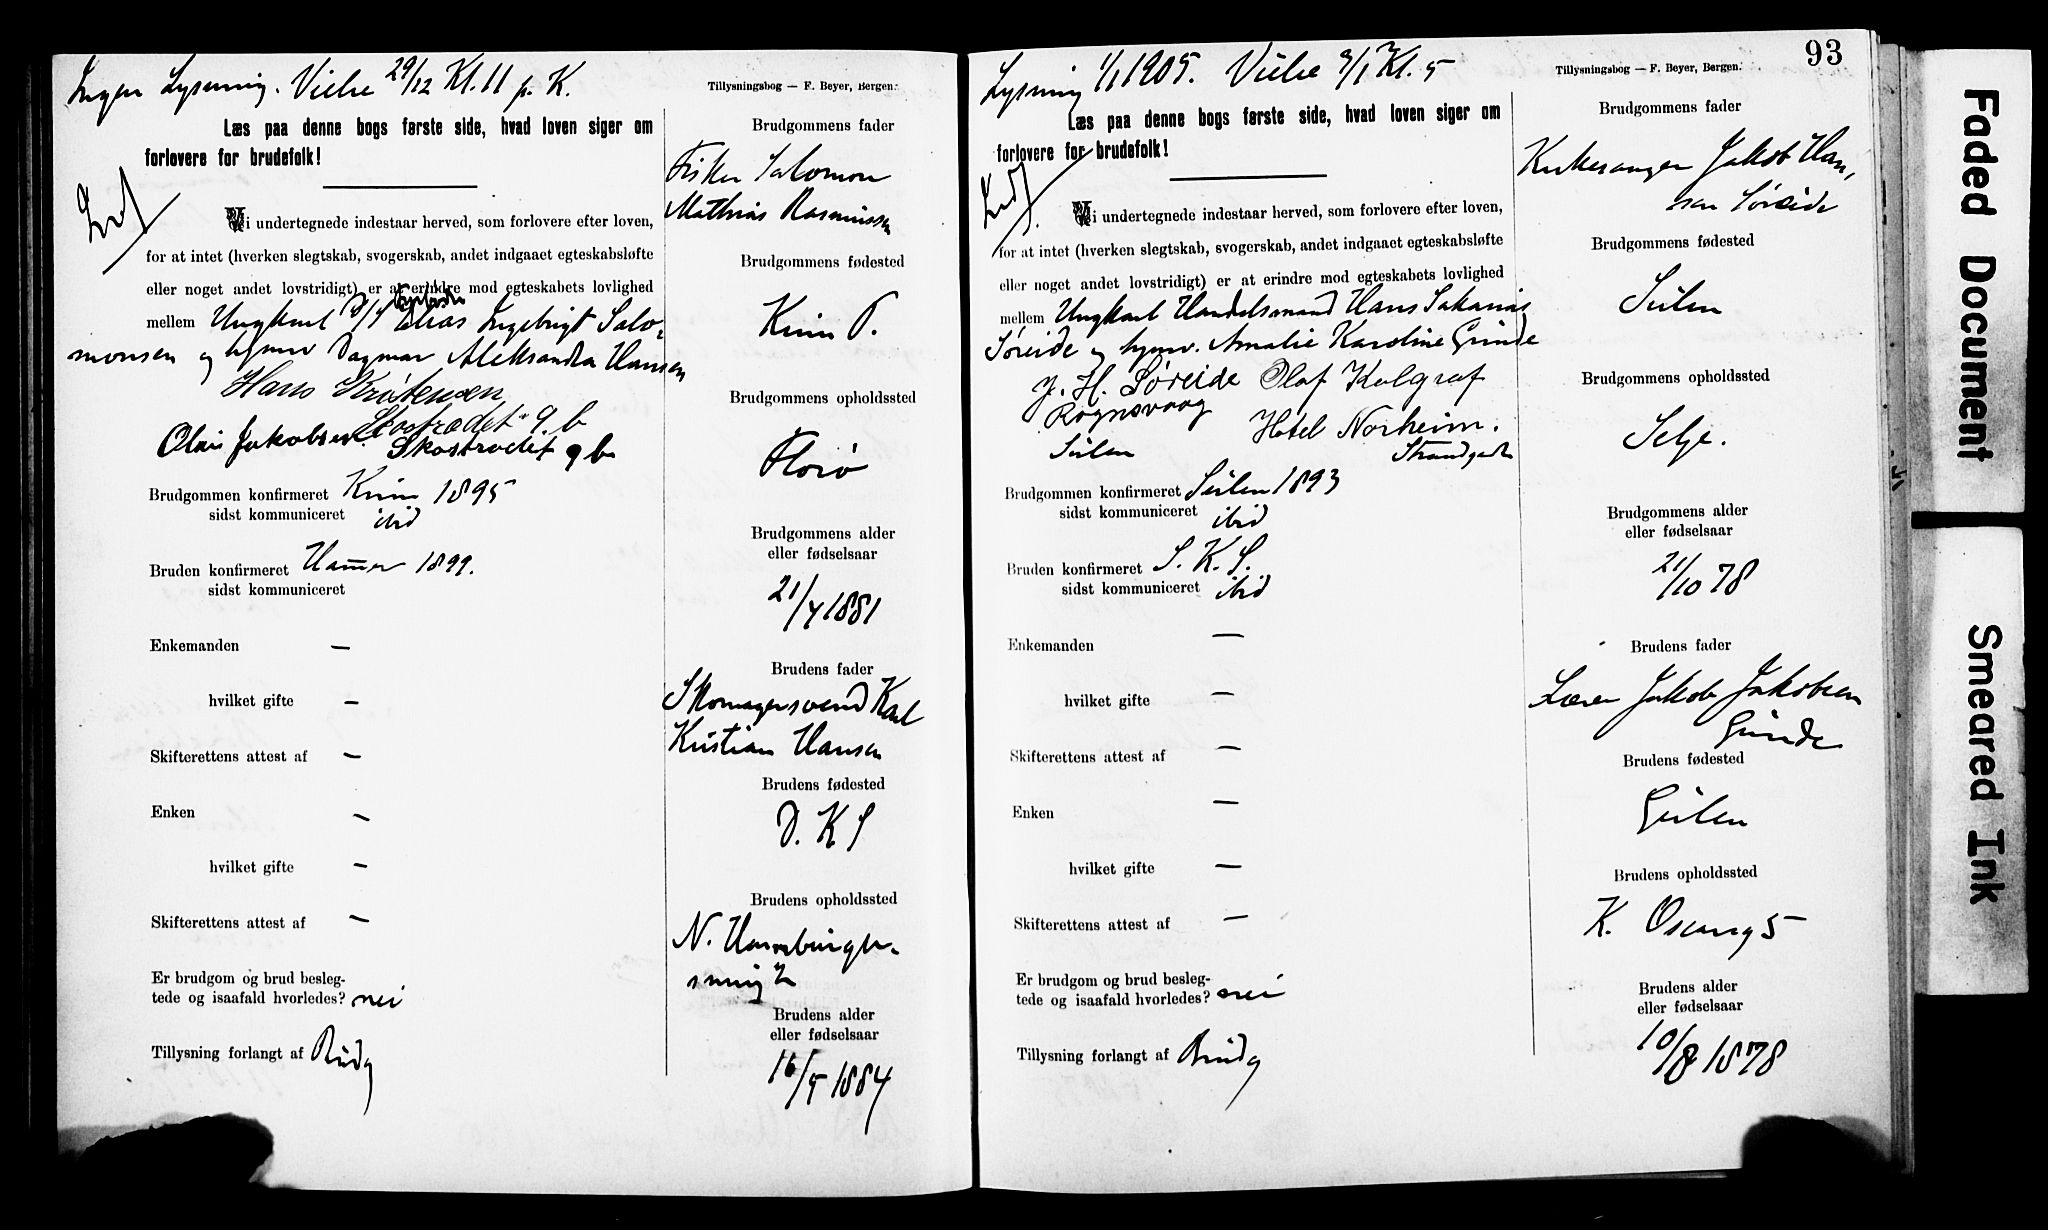 Ingen Lysning. Vielse 29/12 Kl. 11 p. K.
Tillysningsbog — F. Beyer, Bergen.
Læs paa denne bogs første side, hvad loven siger om
forlovere for brudefolk!
Vi undertegnede indestaar herved, som forlovere efter loven,
for at intet (hverken slegtskab, svogerskab, andet indgaaet egteskabsløfte
eller noget andet lovstridigt) er at erindre mod egteskabets lovlighed
mellem Ungkarl Elias Ingebrigt Salo-
monsen og Dagmar Aleksandra Hansen
Hans Kristensen
Skostrædet 9 b
Olai Jakobsen Skostrædet 9 b
Brudgommen konfirmeret Kinn 1895
sidst kommuniceret ibid
Bruden konfirmeret Hammer 1899.
sidst kommuniceret
Enkemanden —
hvilket gifte —
Skifterettens attest af —
Enken —
hvilket gifte —
Skifterettens attest af —
Er brudgom og brud besleg-
tede og isaafald hvorledes? nei
Tillysning forlangt af Brudg
Brudgommens fader
Fisker Salomon
Mathias Rasmussen
Brudgommens fødested
Kinn P.
Brudgommens opholdssted
Florø
Brudgommens alder
eller fødselsaar
21/4 1881
Brudens fader
Skomagersvend Karl
Kristian Hansen
Brudens fødested
D. K S
Brudens opholdssted
N. Hamburger-
smug 2
Brudens alder
eller fødselsaar
16/5 1884
93
Lysning 1/1 1905. Vielse 9/1 Kl. 5
Tillysningsbog — F. Beyer, Bergen.
Læs paa denne bogs første side, hvad loven siger om
forlovere for brudefolk!
Vi undertegnede indestaar herved, som forlovere efter loven,
for at intet (hverken slegtskab, svogerskab, andet indgaaet egteskabsløfte
eller noget andet lovstridigt) er at erindre mod egteskabets lovlighed
mellem Ungkarl Handelsmand Hans Sakarias
Søreide og Amalie Karoline Grinde
J. H. Søreide Olaf Kalgraf
Rognsvaag Hotel Norheim.
Strandgaden
Brudgommen konfirmeret 1893
sidst kommuniceret ibid
Bruden konfirmeret S. K. S.
sidst kommuniceret ibid
Enkemanden —
hvilket gifte —
Skifterettens attest af —
Enken —
hvilket gifte —
Skifterettens attest af —
Er brudgom og brud besleg-
tede og isaafald hvorledes? nei
Tillysning forlangt af Brudg
Brudgommens fader
Kirkesanger Jakob Han-
sen Søreide
Brudgommens fødested
Brudgommens opholdssted
Selje.
Brudgommens alder
eller fødselsaar
21/10 78
Brudens fader
Lærer Jakob Jakobsen
Grinde
Brudens fødested
Brudens opholdssted
K. Oscarsg 5
Brudens alder
eller fødselsaar
10/8 1878
Faded Document
Smeared Ink